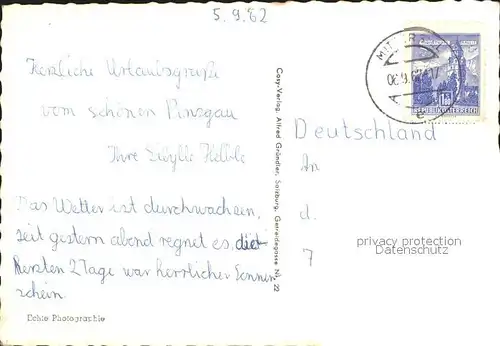 5.9.62
Herzliche Urlaubsgrüße
vom schönen Pinzgau
Ihre Sibylle
Das Wetter ist durchwachsen,
seit gestern abend regnet es, die
ersten 2 Tage war herrlicher Sonnen
schein.
Echte Photographie
Cosy-Verlag Alfred Gründler, Salzburg, Getreidegasse Nr. 22
REPUBLIK ÖSTERREICH
Deutschland
An
d.
7
privacy protection
Datenschutz